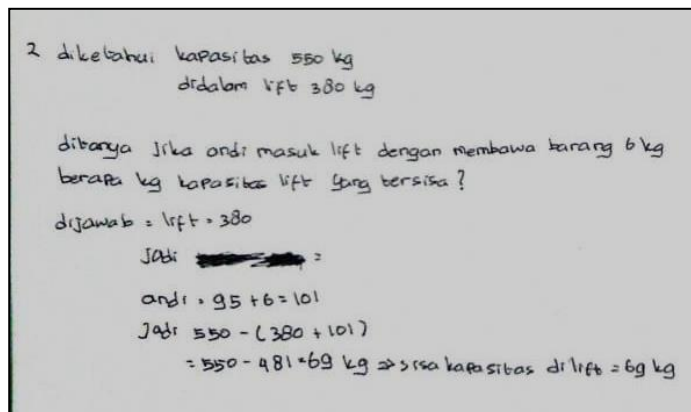 2 diketahui kapasitas 550 kg
didalam lift 380 kg
ditanya jika andi masuk lift dengan membawa barang 6 kg
berapa kg kapasitas lift yang tersisa?
dijawab = lift = 380
Jadi =
andi = 95 + 6 = 101
Jadi 550 - (380 + 101)
= 550 - 481 = 69 kg ⇒ sisa kapasitas di lift = 69 kg